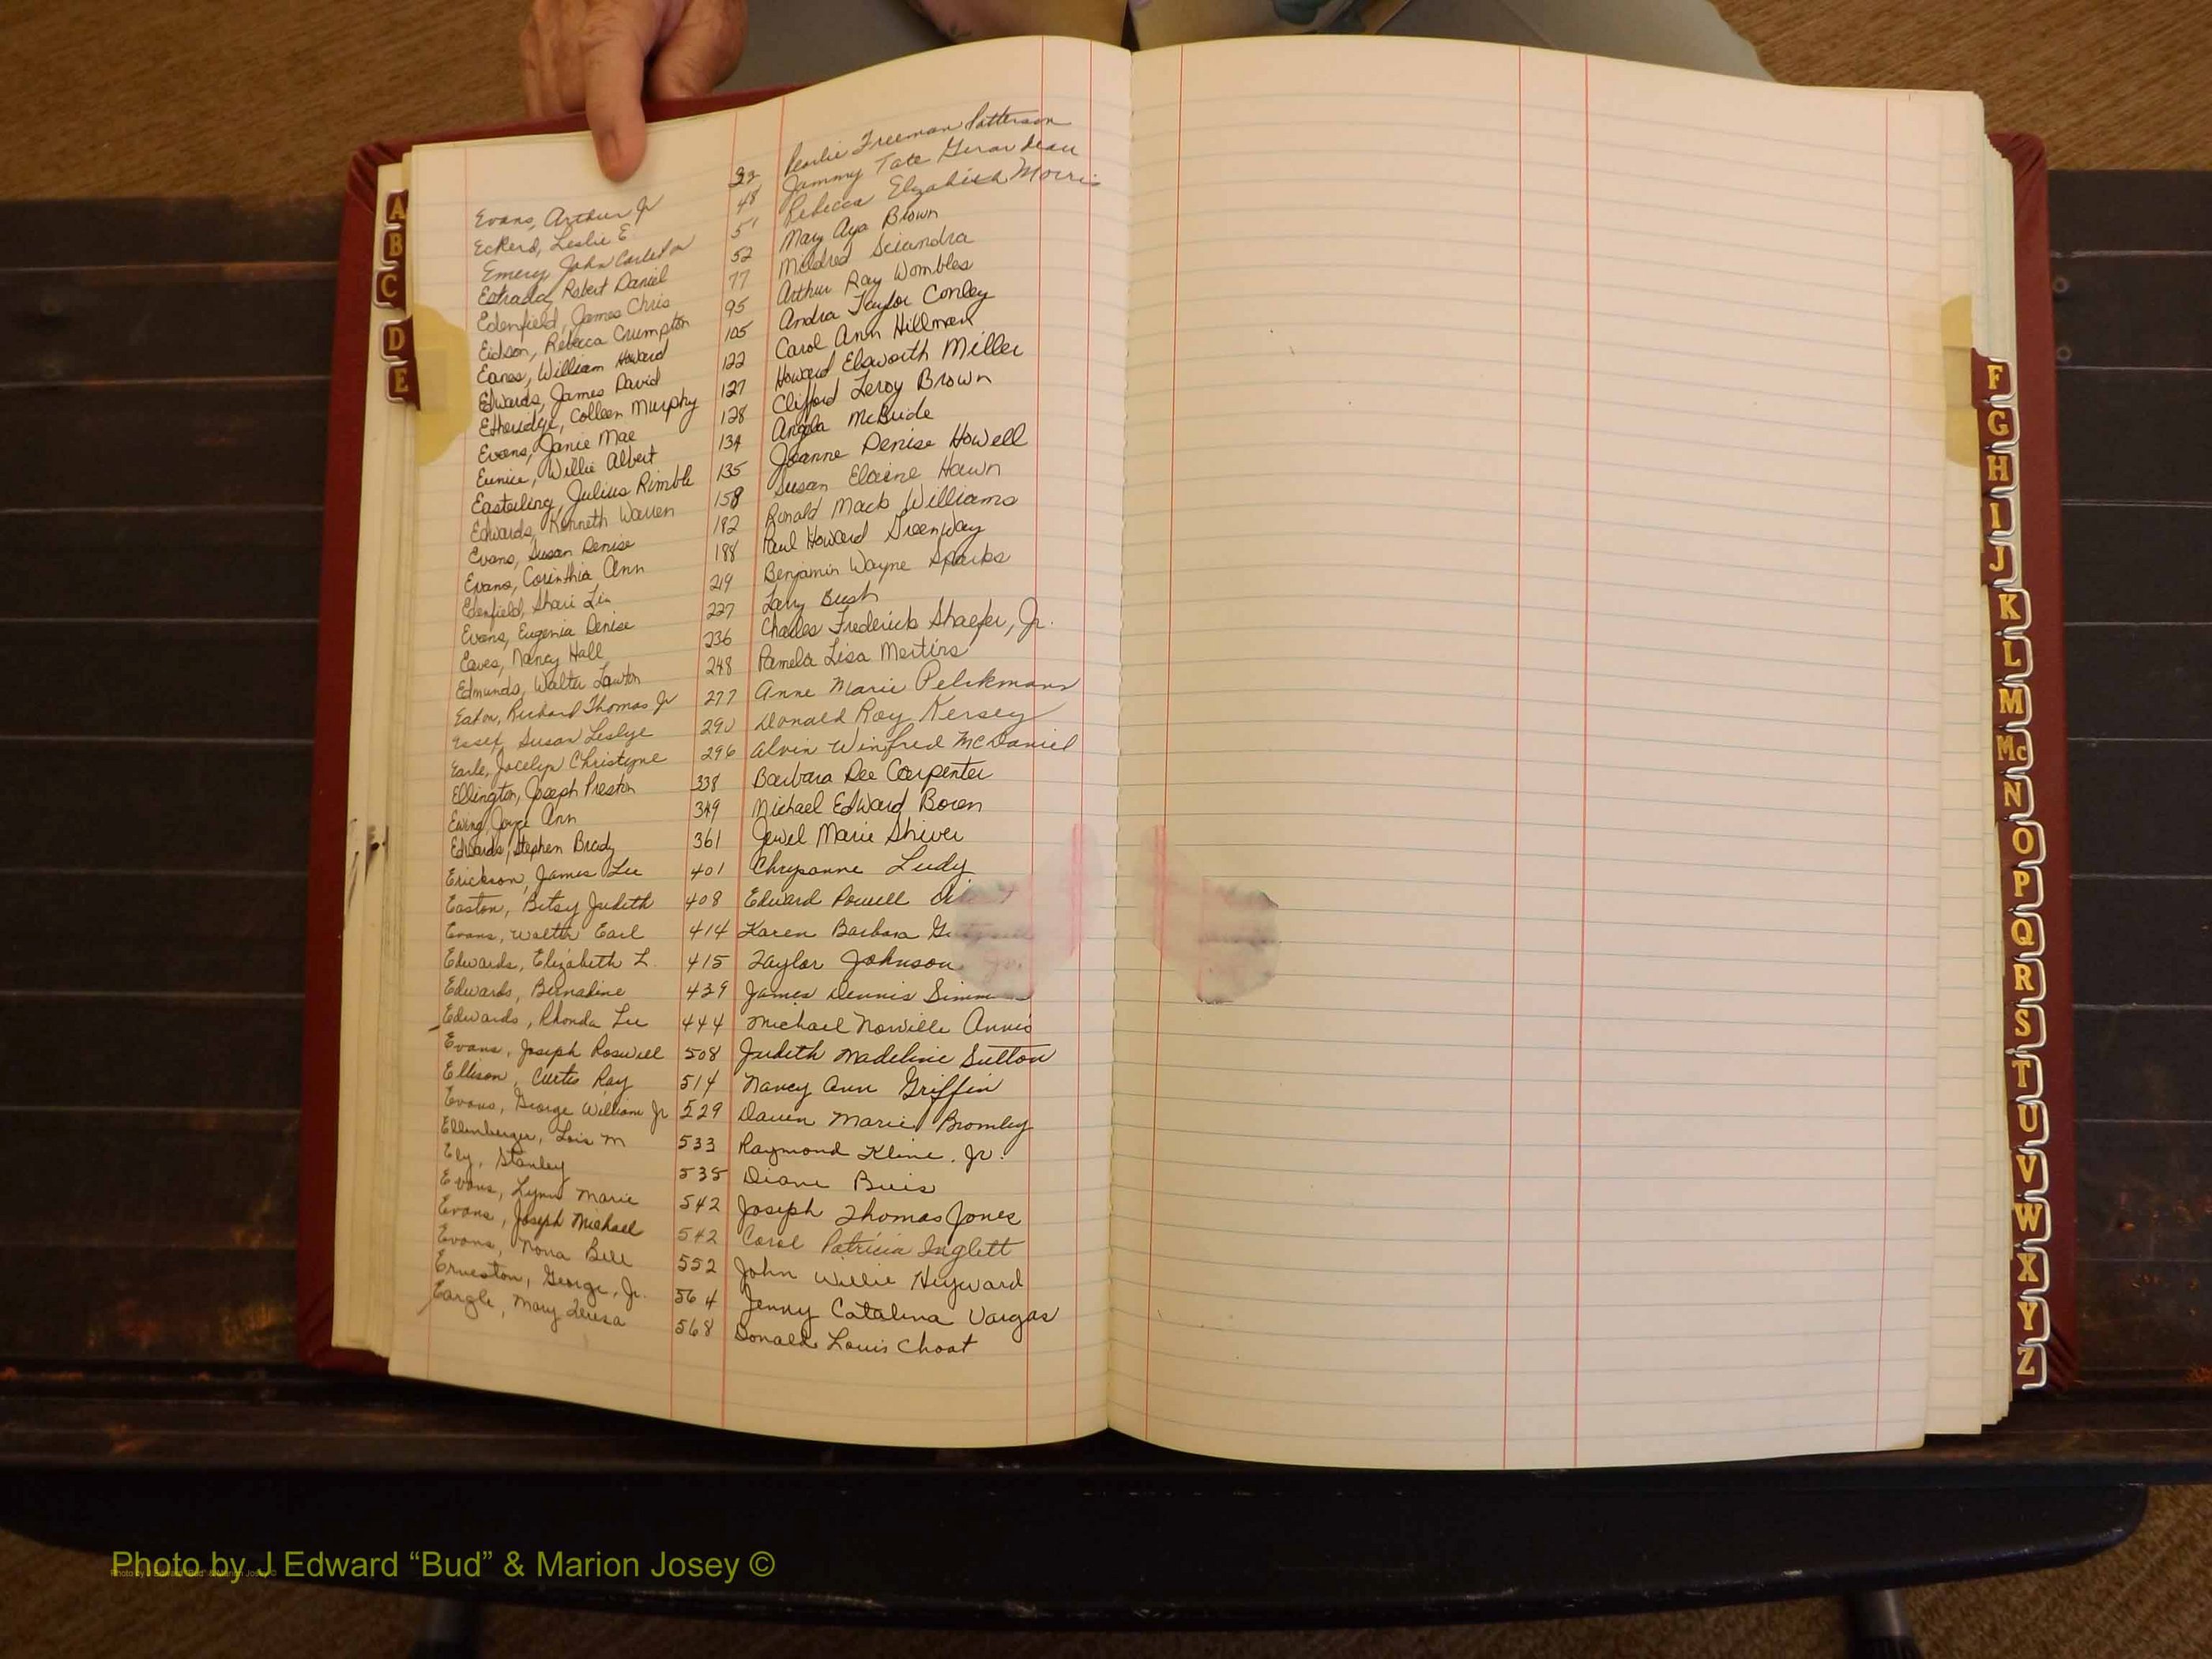 Evans, Arthur Jr 32 Pearlie Freeman Patterson
Eckerd, Leslie E 48 Tammy Tate Girardeau
Emery John Carleton 51 Rebecca Elizabeth Morris
Estrada, Robert Daniel 52 Mary Aya Brown
Edenfield, James Chris 77 Mildred Sciandra
Eidson, Rebecca Crumpton 95 Arthur Ray Wombles
Eanes, William Howard 105 Andra Taylor Conley
Edwards, James David 122 Carol Ann Hillman
Etheridge, Colleen Murphy 127 Howard Elsworth Miller
Evans, Janie Mae 128 Clifford Leroy Brown
Eunice, Willie Albert 134 Angela McBride
Easterling, Julius Rimble 135 Joanne Denise Howell
Edwards, Kenneth Warren 158 Susan Elaine Hawn
Evans, Susan Denise 182 Ronald Mack Williams
Evans, Corinthia Ann 188 Paul Howard Greenway
Edenfield, Shari Lin 219 Benjamin Wayne Sparks
Evans, Eugenia Denise 227 Larry Bush
Eaves, Nancy Hall 236 Charles Frederick Shaefer, Jr.
Edmunds, Walter Lawton 248 Pamela Lisa Mertins
Eaton, Richard Thomas Jr 277 Anne Marie Pelckmans
Essex, Susan Leslye 290 Donald Roy Kersey
Earle, Jocelyn Christyne 296 Alvin Winfred McDaniel
Ellington, Joseph Preston 338 Barbara Dee Carpenter
Ewing, Joyce Ann 349 Michael Edward Boren
Edwards, Stephen Brady 361 Jewel Marie Shiver
Erickson, James Lee 401 Chrysanne Ludy
Easton, Betsy Judith 408 Edward Powell
Evans, Walter Earl 414 Karen Barbara
Edwards, Elizabeth L. 415 Taylor Johnson Jr.
Edwards, Bernadine 439 James Dennis
Edwards, Rhonda Lee 444 Michael Norville Annis
Evans, Joseph Roswell 508 Judith Madeline Sutton
Ellison, Curtis Ray 514 Nancy Ann Griffin
Evans, George William Jr 529 Dawn Marie Bromley
Ellenberger, Lois M 533 Raymond Kline, Jr.
Ely, Stanley 535 Diane Buis
Evans, Lynn Marie 542 Joseph Thomas Jones
Evans, Joseph Michael 542 Carol Patricia Inglett
Evans, Nona Bell 552 John Willie Heyward
Erneston, George, Jr. 564 Jenny Catalina Vargas
Eargle, Mary Teresa 568 Donald Louis Choat
A
B
C
D
E
F
G
H
I
J
K
L
M
Mc
N
O
P
Q
R
S
T
U
V
W
X
Y
Z
Photo by J Edward “Bud” & Marion Josey ©
Photo by J Edward "Bud" & Marion Josey ©